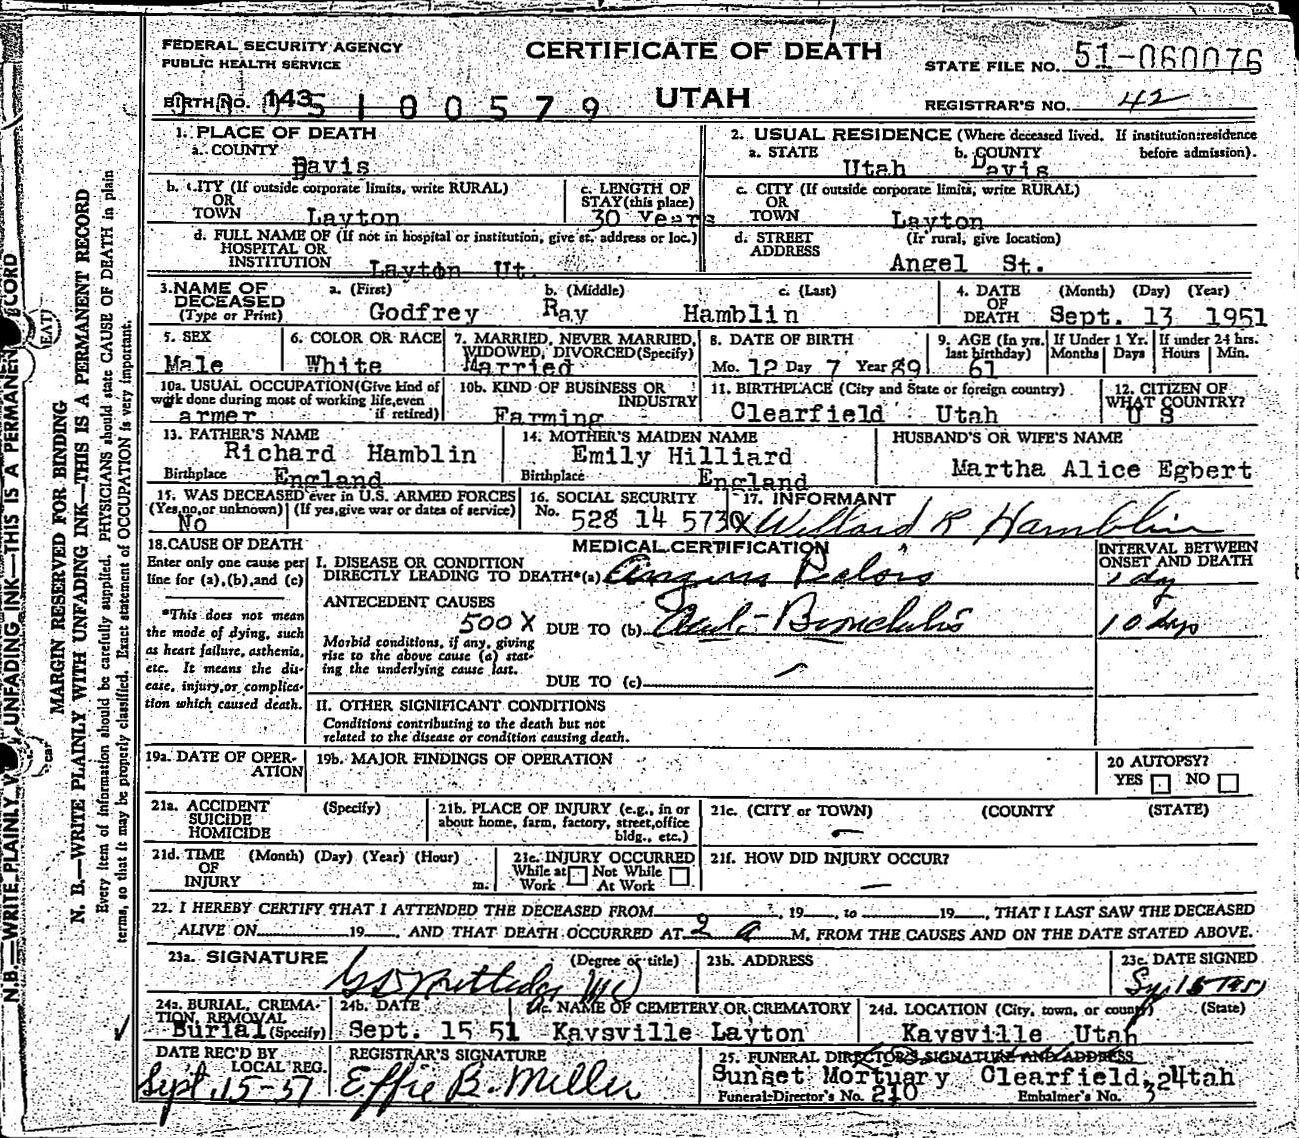 FEDERAL SECURITY AGENCY
PUBLIC HEALTH SERVICE
CERTIFICATE OF DEATH
UTAH
STATE FILE NO. 51-060076
BIRTH NO. 143 5100579
REGISTRAR'S NO. 42
1. PLACE OF DEATH
a. COUNTY Davis
2. USUAL RESIDENCE (Where deceased lived. If institution:residence before admission).
a. STATE Utah b. COUNTY Davis
b. CITY (If outside corporate limits, write RURAL)
OR
TOWN Layton
c. LENGTH OF
STAY (this place)
30 Years
c. CITY (If outside corporate limits, write RURAL)
OR
TOWN Layton
d. FULL NAME OF (If not in hospital or institution, give st. address or loc.)
HOSPITAL OR
INSTITUTION Layton Ut.
d. STREET (If rural, give location)
ADDRESS Angel St.
3. NAME OF
DECEASED
(Type or Print)
a. (First) b. (Middle) c. (Last)
Godfrey Ray Hamblin
4. DATE OF DEATH (Month) (Day) (Year)
Sept. 13 1951
5. SEX
Male
6. COLOR OR RACE
White
7. MARRIED, NEVER MARRIED,
WIDOWED, DIVORCED (Specify)
Married
8. DATE OF BIRTH
Mo. 12 Day 7 Year 89
9. AGE (In yrs. last birthday)
61
If Under 1 Yr. Months Days
If under 24 hrs. Hours Min.
10a. USUAL OCCUPATION (Give kind of
work done during most of working life, even
if retired)
armer
10b. KIND OF BUSINESS OR
INDUSTRY
Farming
11. BIRTHPLACE (City and State or foreign country)
Clearfield Utah
12. CITIZEN OF
WHAT COUNTRY?
U S
13. FATHER'S NAME
Richard Hamblin
Birthplace England
14. MOTHER'S MAIDEN NAME
Emily Hilliard
Birthplace England
HUSBAND'S OR WIFE'S NAME
Martha Alice Egbert
15. WAS DECEASED ever in U.S. ARMED FORCES
(Yes, no, or unknown) (If yes, give war or dates of service)
No
16. SOCIAL SECURITY
No. 528 14 5730
17. INFORMANT
X Willard R Hamblin
18. CAUSE OF DEATH
Enter only one cause per
line for (a), (b), and (c)
*This does not mean
the mode of dying, such
as heart failure, asthenia,
etc. It means the dis-
ease, injury, or complica-
tion which caused death.
MEDICAL CERTIFICATION
INTERVAL BETWEEN
ONSET AND DEATH
I. DISEASE OR CONDITION
DIRECTLY LEADING TO DEATH*(a) Angina Pectoris 1 dy
ANTECEDENT CAUSES
500 X DUE TO (b) Bronchitis 10 dys
Morbid conditions, if any, giving
rise to the above cause (a) stat-
ing the underlying cause last.
DUE TO (c)
II. OTHER SIGNIFICANT CONDITIONS
Conditions contributing to the death but not
related to the disease or condition causing death.
19a. DATE OF OPER-
ATION
19b. MAJOR FINDINGS OF OPERATION
20 AUTOPSY?
YES NO
21a. ACCIDENT
SUICIDE
HOMICIDE
(Specify)
21b. PLACE OF INJURY (e.g., in or
about home, farm, factory, street, office
bldg., etc.)
21c. (CITY or TOWN) (COUNTY) (STATE)
21d. TIME
OF
INJURY
(Month) (Day) (Year) (Hour)
m.
21e. INJURY OCCURRED
While at Work Not While At Work
21f. HOW DID INJURY OCCUR?
22. I HEREBY CERTIFY THAT I ATTENDED THE DECEASED FROM , 19 , to 19 , THAT I LAST SAW THE DECEASED
ALIVE ON 19 , AND THAT DEATH OCCURRED AT 2 a M, FROM THE CAUSES AND ON THE DATE STATED ABOVE.
23a. SIGNATURE (Degree or title)
23b. ADDRESS
23c. DATE SIGNED
24a. BURIAL, CREMA-
TION, REMOVAL
Burial (Specify)
24b. DATE
Sept. 15 51
24c. NAME OF CEMETERY OR CREMATORY
Kaysville Layton
24d. LOCATION (City, town, or county) (State)
Kaysville Utah
DATE REC'D BY
LOCAL REG.
Sept. 15-51
REGISTRAR'S SIGNATURE
Effie B. Miller
25. FUNERAL DIRECTOR'S SIGNATURE AND ADDRESS
Sunset Mortuary Clearfield, Utah
Funeral Director's No. 210 Embalmer's No.
MARGIN RESERVED FOR BINDING
N. B.—WRITE PLAINLY WITH UNFADING INK—THIS IS A PERMANENT RECORD
Every item of information should be carefully supplied. PHYSICIANS should state CAUSE OF DEATH in plain
terms, so that it may be properly classified. Exact statement of OCCUPATION is very important.
N.B.—WRITE PLAINLY W UNFADING INK—THIS IS A PERMANEN RECORD